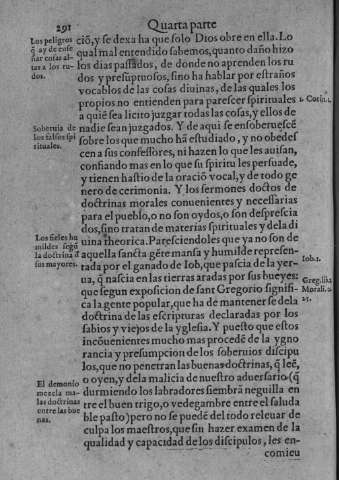 291
Quarta parte
Los peligros
q̃ ay de ense
ñar cosas al-
tas a los ru-
dos.
Soberuia de
los falsos spi
rituales.
Los fieles hu
mildes segũ
la doctrina d̃
sus mayores.
El demonio
mezcla ma-
las doctrinas
entre las bue
nas.
ciõ, y se dexa ha que solo Dios obre en ella. Lo
qual mal entendido sabemos, quanto daño hizo
los dias passados, de donde no aprenden los ru
dos y presuptuosos, sino ha hablar por estraños
vocablos de las cosas diuinas, de las quales los
propios no entienden para parescer spirituales
a quiẽ sea licito juzgar todas las cosas, y ellos de
nadie sean juzgados. Y de aqui se ensoberuescẽ
sobre los que mucho hã estudiado, y no obedes
cen a sus confessores, ni hazen lo que les auisan,
confiando mas en lo que su spiritu les persuade,
y tienen hastio de la oraciõ vocal, y de todo ge
nero de cerimonia. Y los sermones doctos de
doctrinas morales conuenientes y necessarias
para el pueblo, o no son oydos, o son desprescia
dos, sino tratan de materias spirituales y dela di
uina theorica. Paresciendoles que ya no son de
aquella sancta gẽte mansa y humilde represen-
tada por el ganado de Iob, que pascia de la yer-
ua, q̃ nascia en las tierras aradas por sus bueyes:
que segun exposicion de sant Gregorio signifi-
ca la gente popular, que ha de mantener se dela
doctrina de las escripturas declaradas por los
sabios y viejos de la yglesia. Y puesto que estos
incõuenientes mucho mas procedẽ de la ygno
rancia y presumpcion de los soberuios discipu
los, que no penetran las buenas doctrinas, q̃ leẽ,
o oyen, y dela malicia de nuestro aduersario (q̃
durmiendo los labradores siembra neguilla en
tre el buen trigo, o vedegambre entre el saluda
ble pasto) pero no se puede del todo releuar de
culpa los maestros, que sin hazer examen de la
qualidad y capacidad de los discipulos, les en-
comieu
1. Corin. 2.
Iob. 1.
Moral. 2.